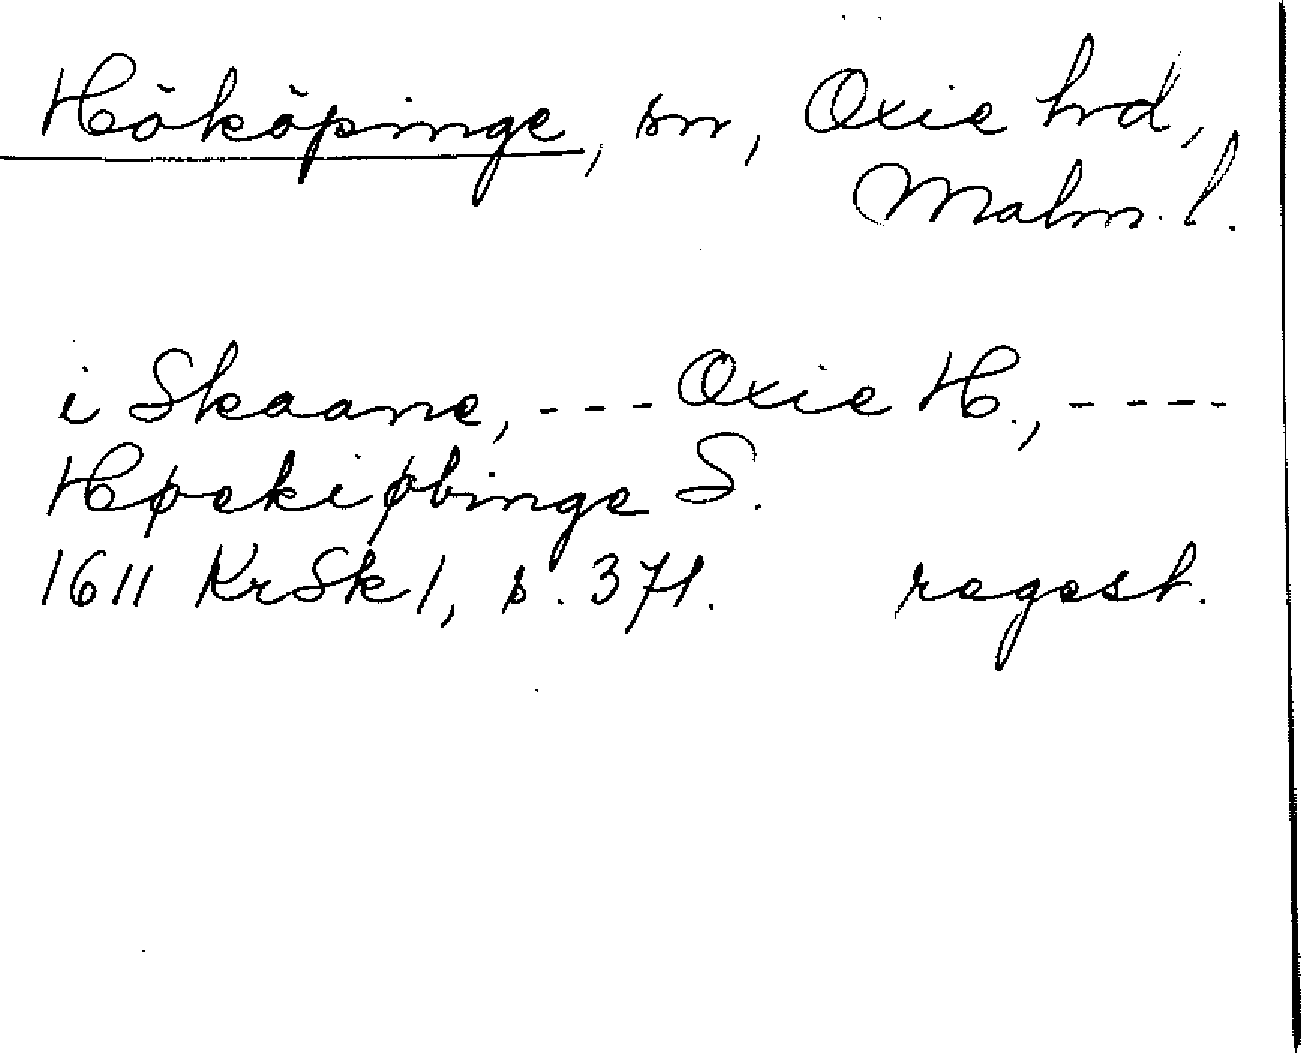 Hököpinge, sn, Oxie hd,
Malm. l.
i Skaane, --- Oxie H., ----
Høekiøbinge S.
1611 KrSk 1, s. 371. regest.